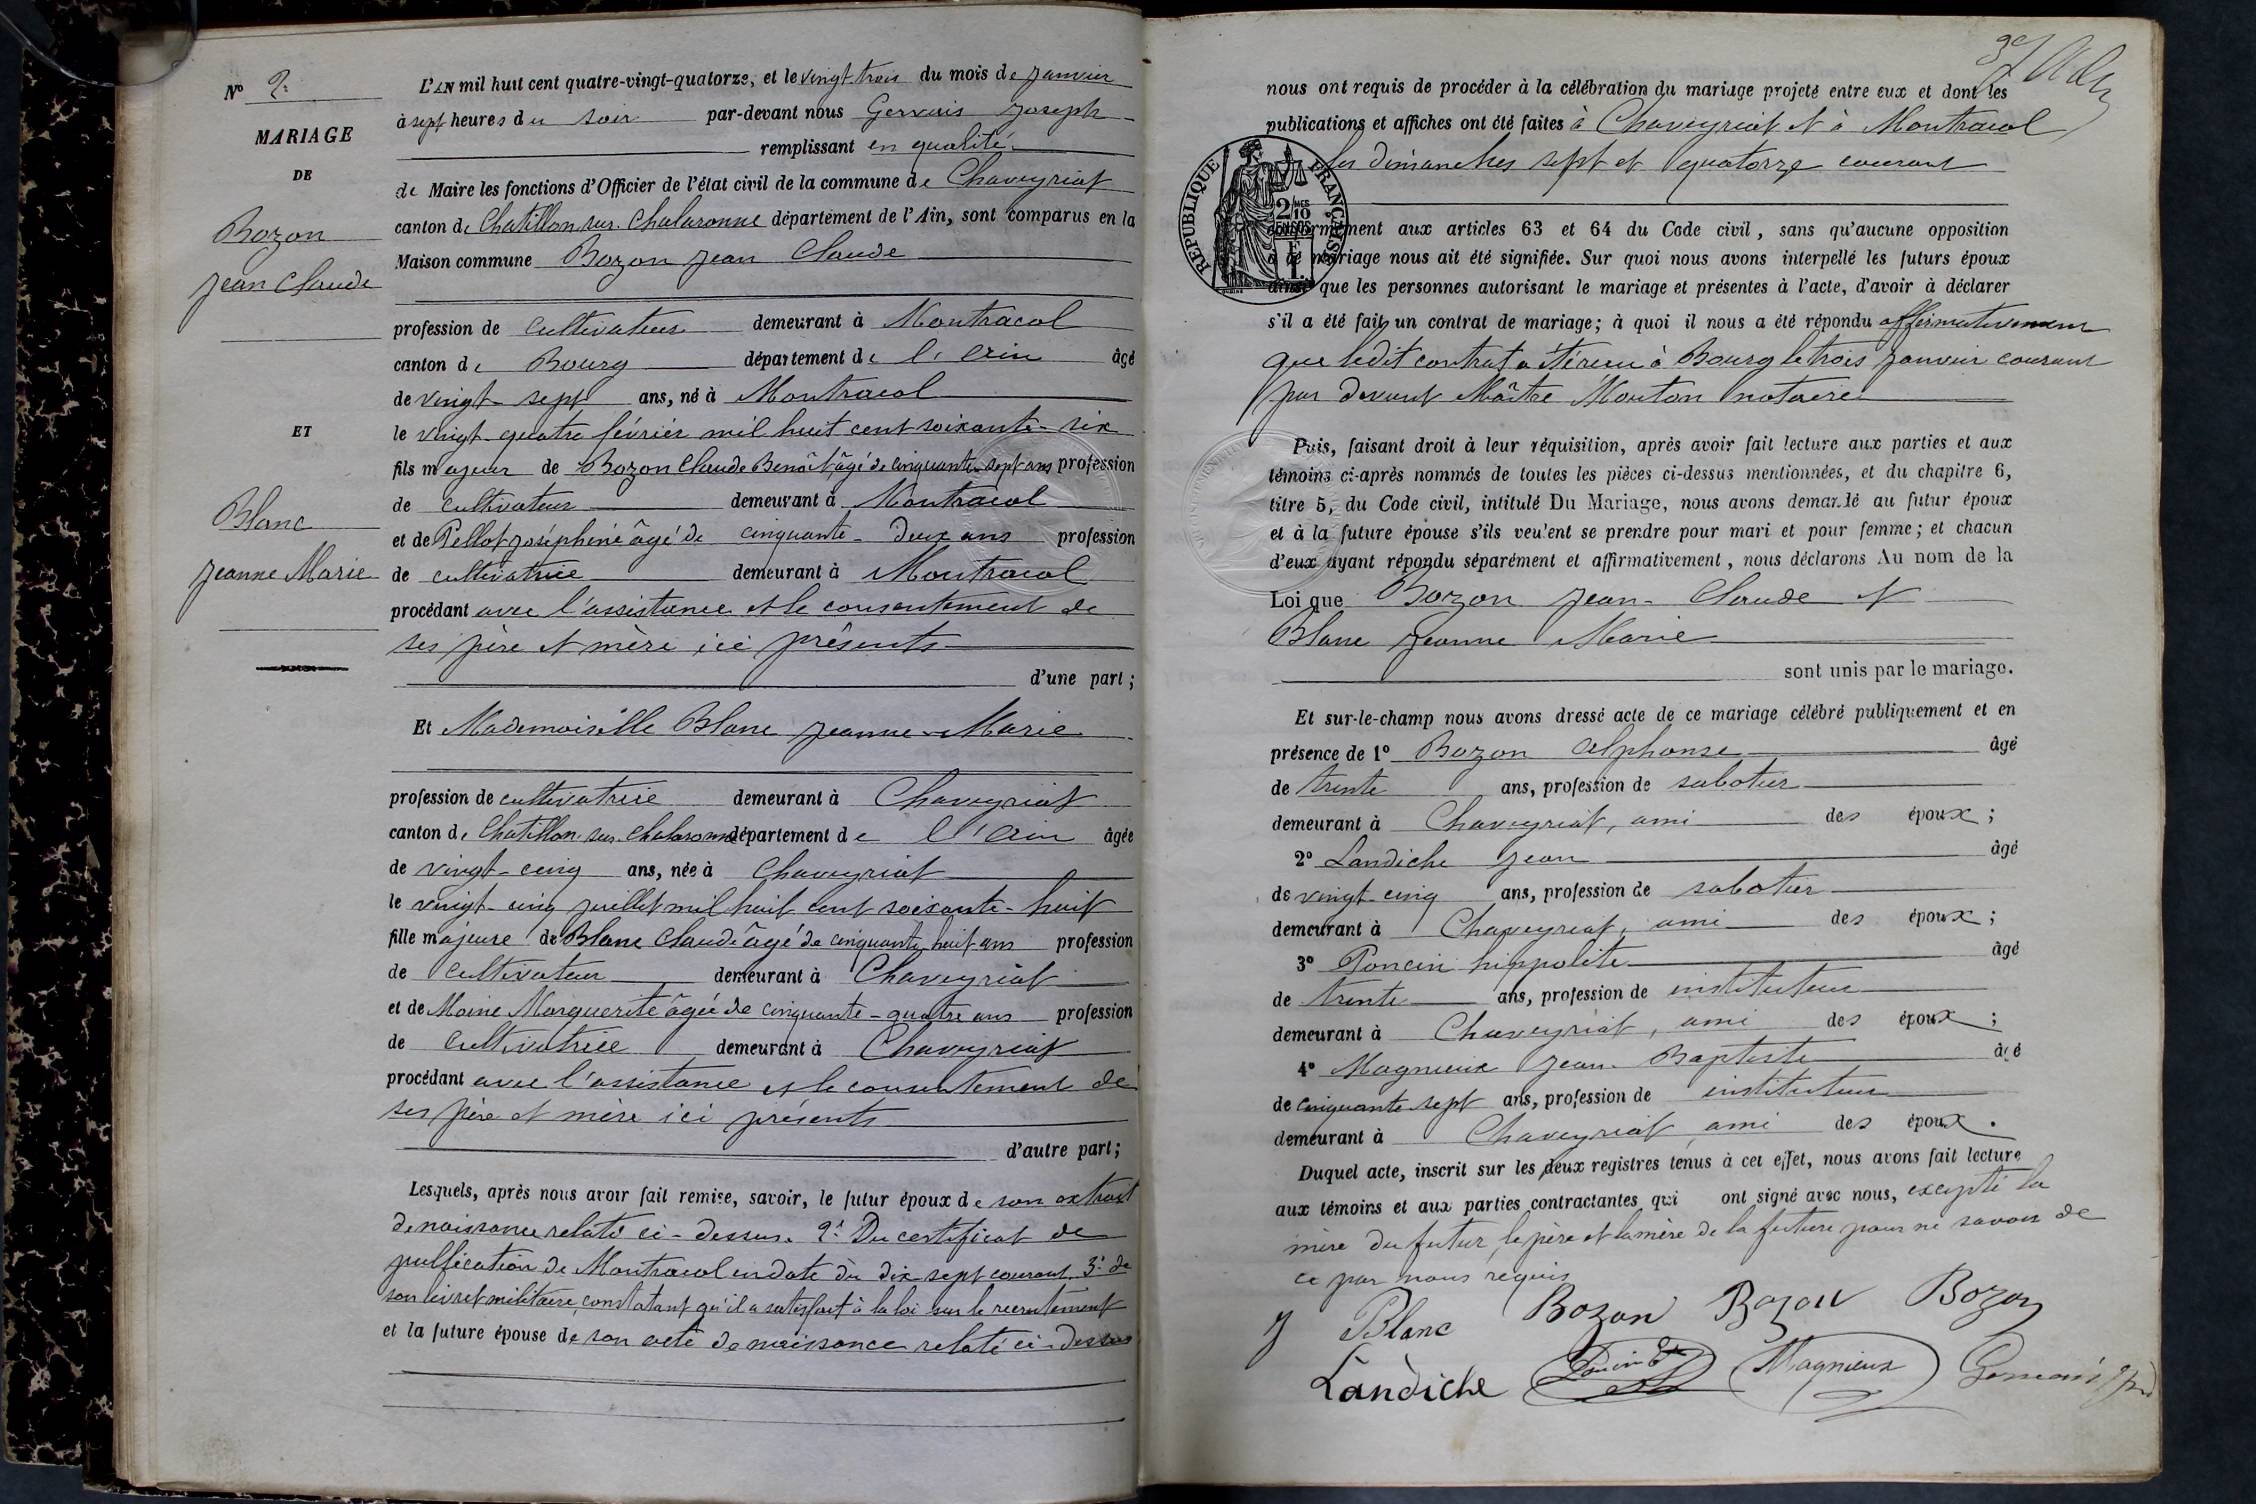 N° 2.
MARIAGE
DE
Bozon
Jean Claude
ET
Blanc
Jeanne Marie
L'AN mil huit cent quatre-vingt-quatorze, et le vingt trois du mois de Janvier
à sept heures du soir par-devant nous Gervais Joseph
remplissant en qualité
de Maire les fonctions d'Officier de l'état civil de la commune de Chaveyriat
canton de Chatillon sur Chalaronne département de l'Ain, sont comparus en la
Maison commune Bozon Jean Claude
profession de cultivateur demeurant à Montracol
canton de Bourg département de l'Ain âgé
de vingt-sept ans, né à Montracol
le vingt-quatre février mil huit cent soixante-six
fils majeur de Bozon Claude Benoît âgé de cinquante-sept ans profession
de cultivateur demeurant à Montracol
et de Pellot Joséphine âgé de cinquante-deux ans profession
de cultivatrice demeurant à Montracol
procédant avec l'assistance et le consentement de
ses père et mère ici présents
d'une part;
Et Mademoiselle Blanc Jeanne-Marie
profession de cultivatrice demeurant à Chaveyriat
canton de Chatillon-sur-Chalaronne département de l'Ain âgée
de vingt-cinq ans, née à Chaveyriat
le vingt-cinq juillet mil huit cent soixante-huit
fille majeure de Blanc Claude âgé de cinquante huit ans profession
de cultivateur demeurant à Chaveyriat
et de Moine Marguerite âgée de cinquante-quatre ans profession
de cultivatrice demeurant à Chaveyriat
procédant avec l'assistance et le consentement de
ses père et mère ici présents
d'autre part;
Lesquels, après nous avoir fait remise, savoir, le futur époux de son extrait
de naissance relaté ci-dessus. 2° Du certificat de
publication de Montracol en date du dix sept courant. 3° de
son livret militaire constatant qu'il a satisfait à la loi sur le recrutement
et la future épouse de son acte de naissance relaté ci-dessus
37
nous ont requis de procéder à la célébration du mariage projeté entre eux et dont les
publications et affiches ont été faites à Chaveyriat et à Montracol
les dimanches sept et quatorze courant
RÉPUBLIQUE FRANÇAISE
2/10 MES
EN SUS
F
1.
conformément aux articles 63 et 64 du Code civil, sans qu'aucune opposition
à ce mariage nous ait été signifiée. Sur quoi nous avons interpellé les futurs époux
ainsi que les personnes autorisant le mariage et présentes à l'acte, d'avoir à déclarer
s'il a été fait un contrat de mariage; à quoi il nous a été répondu affirmativement
que ledit contrat a été reçu à Bourg le trois janvier courant
par devant Maître Mouton notaire
Puis, faisant droit à leur réquisition, après avoir fait lecture aux parties et aux
témoins ci-après nommés de toutes les pièces ci-dessus mentionnées, et du chapitre 6,
titre 5, du Code civil, intitulé Du Mariage, nous avons demandé au futur époux
et à la future épouse s'ils veulent se prendre pour mari et pour femme; et chacun
d'eux ayant répondu séparément et affirmativement, nous déclarons Au nom de la
Loi que Bozon Jean-Claude et
Blanc Jeanne Marie
sont unis par le mariage.
Et sur-le-champ nous avons dressé acte de ce mariage célébré publiquement et en
présence de 1° Bozon Alphonse âgé
de trente ans, profession de sabotier
demeurant à Chaveyriat, ami des époux;
2° Landiche Jean âgé
de vingt-cinq ans, profession de sabotier
demeurant à Chaveyriat, ami des époux;
3° Poncin hippolite âgé
de trente ans, profession de instituteur
demeurant à Chaveyriat, ami des époux;
4° Magnieux Jean-Baptiste âgé
de cinquante sept ans, profession de instituteur
demeurant à Chaveyriat ami des époux.
Duquel acte, inscrit sur les deux registres tenus à cet effet, nous avons fait lecture
aux témoins et aux parties contractantes qui ont signé avec nous, excepté la
mère du futur, le père et la mère de la future pour ne savoir de
ce par nous requis
J Blanc Bozon Bozon Bozon
Landiche Poncin Magnieux Gervais